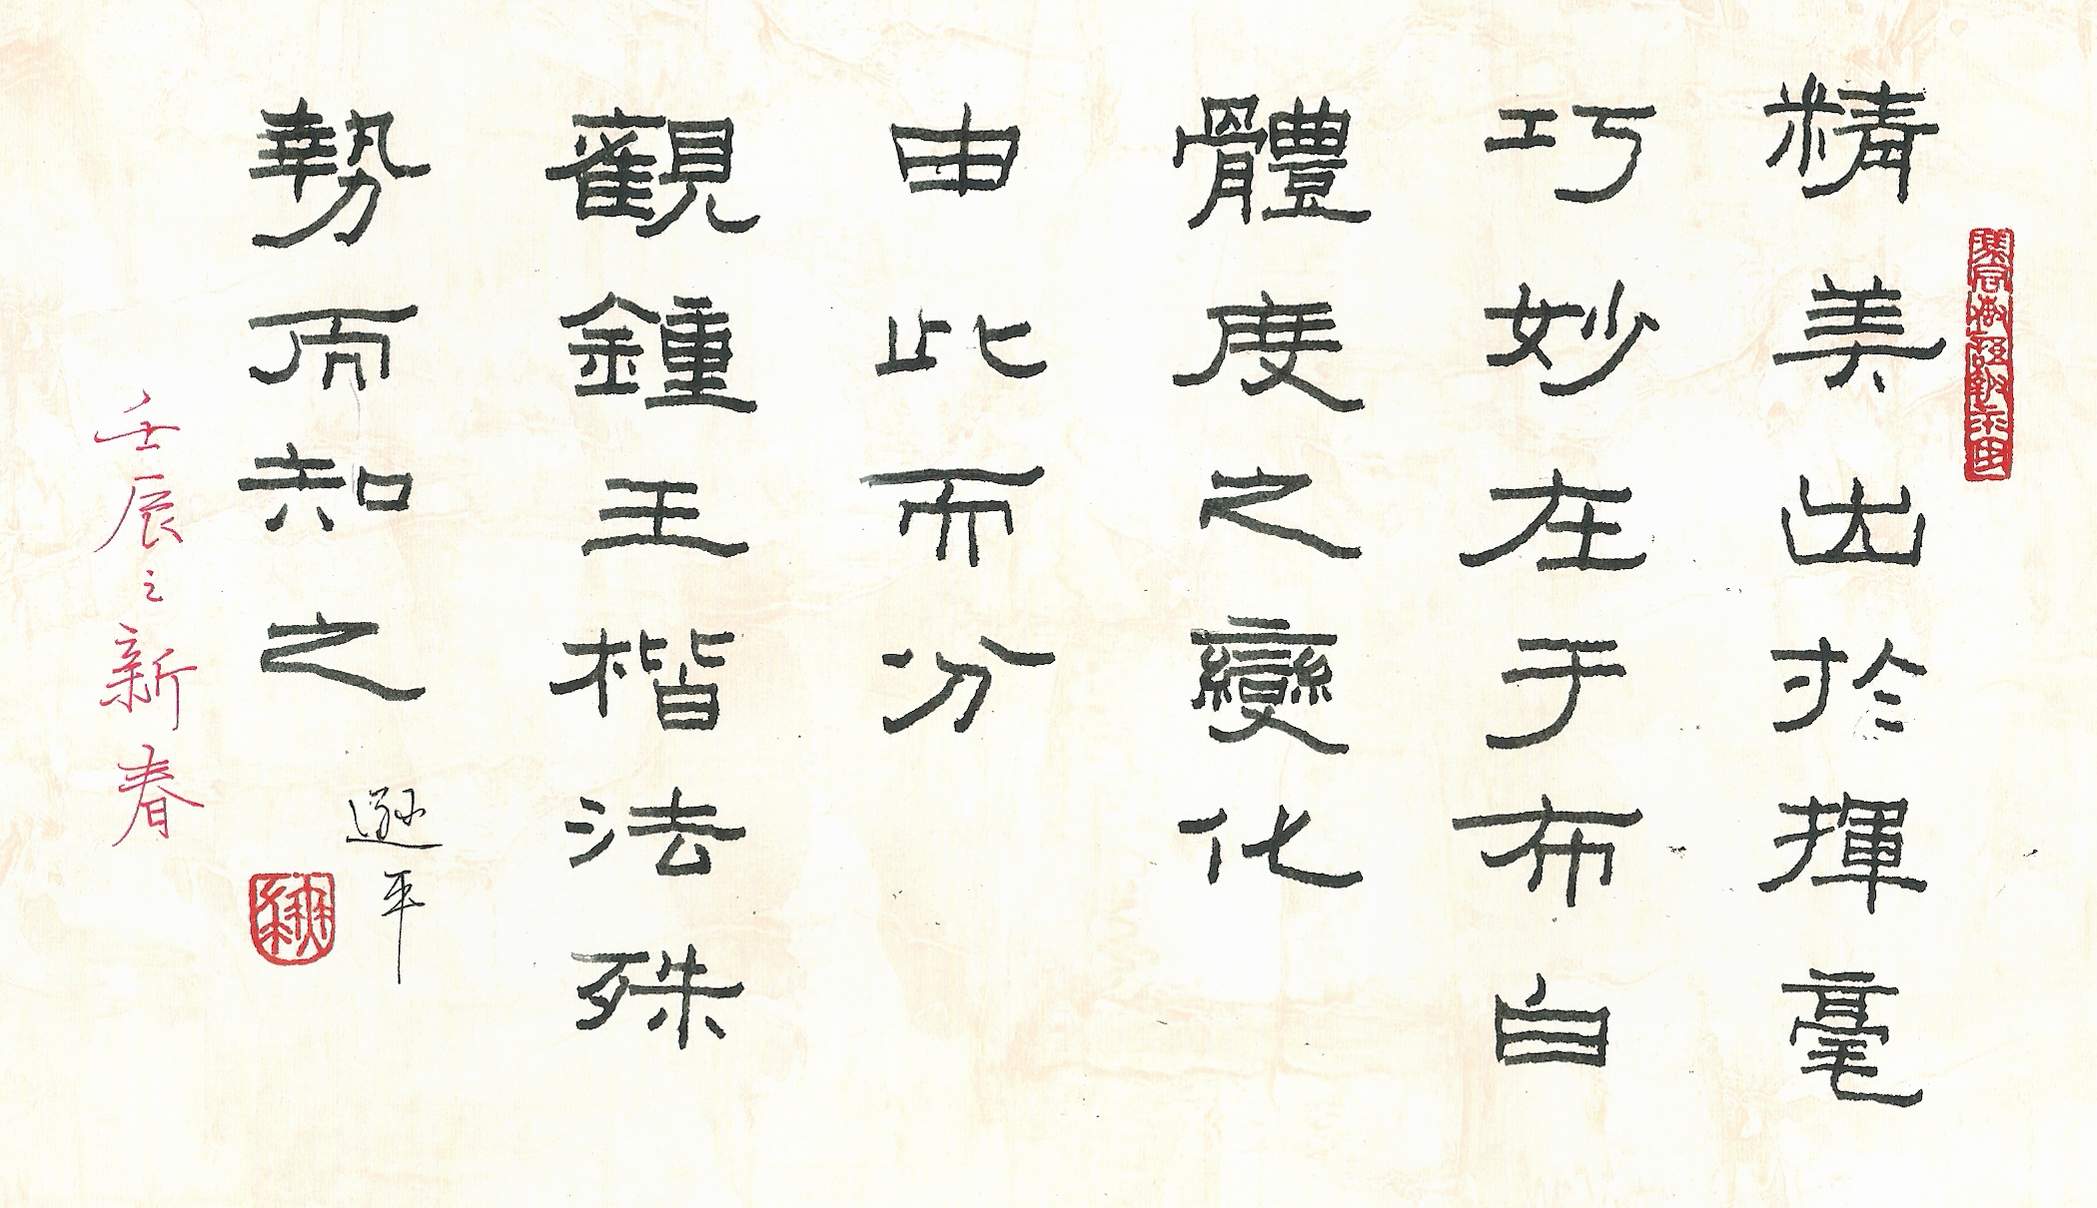 精美出於揮毫
巧妙在于布白
體度之變化
由此而分
觀鍾王楷法殊
勢而知之
遜平
壬辰之新春